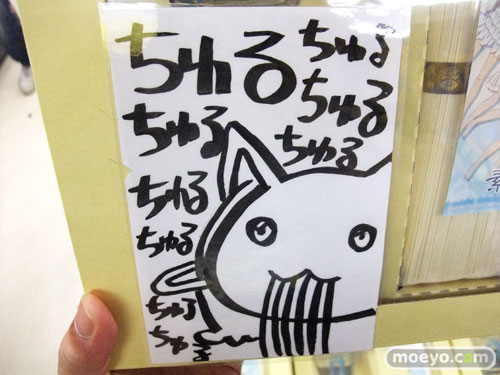 ちゅる
ちゅる
ちゅる
ちゅる
ちゅる
ちゅる
ちゅる
ちゅる
ちゅ
moeyo.com